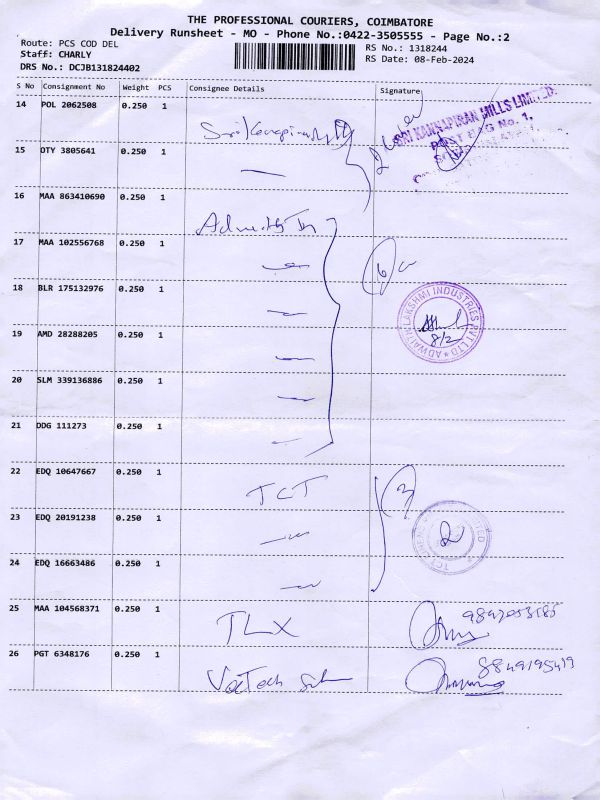 THE PROFESSIONAL COURIERS, COIMBATORE
Delivery Runsheet - MO - Phone No.:0422-3505555 - Page No.:2
Route: PCS COD DEL
Staff: CHARLY
DRS No.: DCJB131824402
RS No.: 1318244
RS Date: 08-Feb-2024
S No Consignment No Weight PCS Consignee Details Signature
14 POL 2062508 0.250 1
SRI KANNAPIRAN MILLS LIMITED.
POST BAG No. 1,
15 OTY 3805641 0.250 1
16 MAA 863410690 0.250 1
17 MAA 102556768 0.250 1
6
18 BLR 175132976 0.250 1
ADWAITH LAKSHMI INDUSTRIES PVT LTD
8/2
19 AMD 28288205 0.250 1
20 SLM 339136886 0.250 1
21 DDG 111273 0.250 1
22 EDQ 10647667 0.250 1 TCT 3
23 EDQ 20191238 0.250 1
24 EDQ 16663486 0.250 1
25 MAA 104568371 0.250 1 TLX
26 PGT 6348176 0.250 1 8849195419